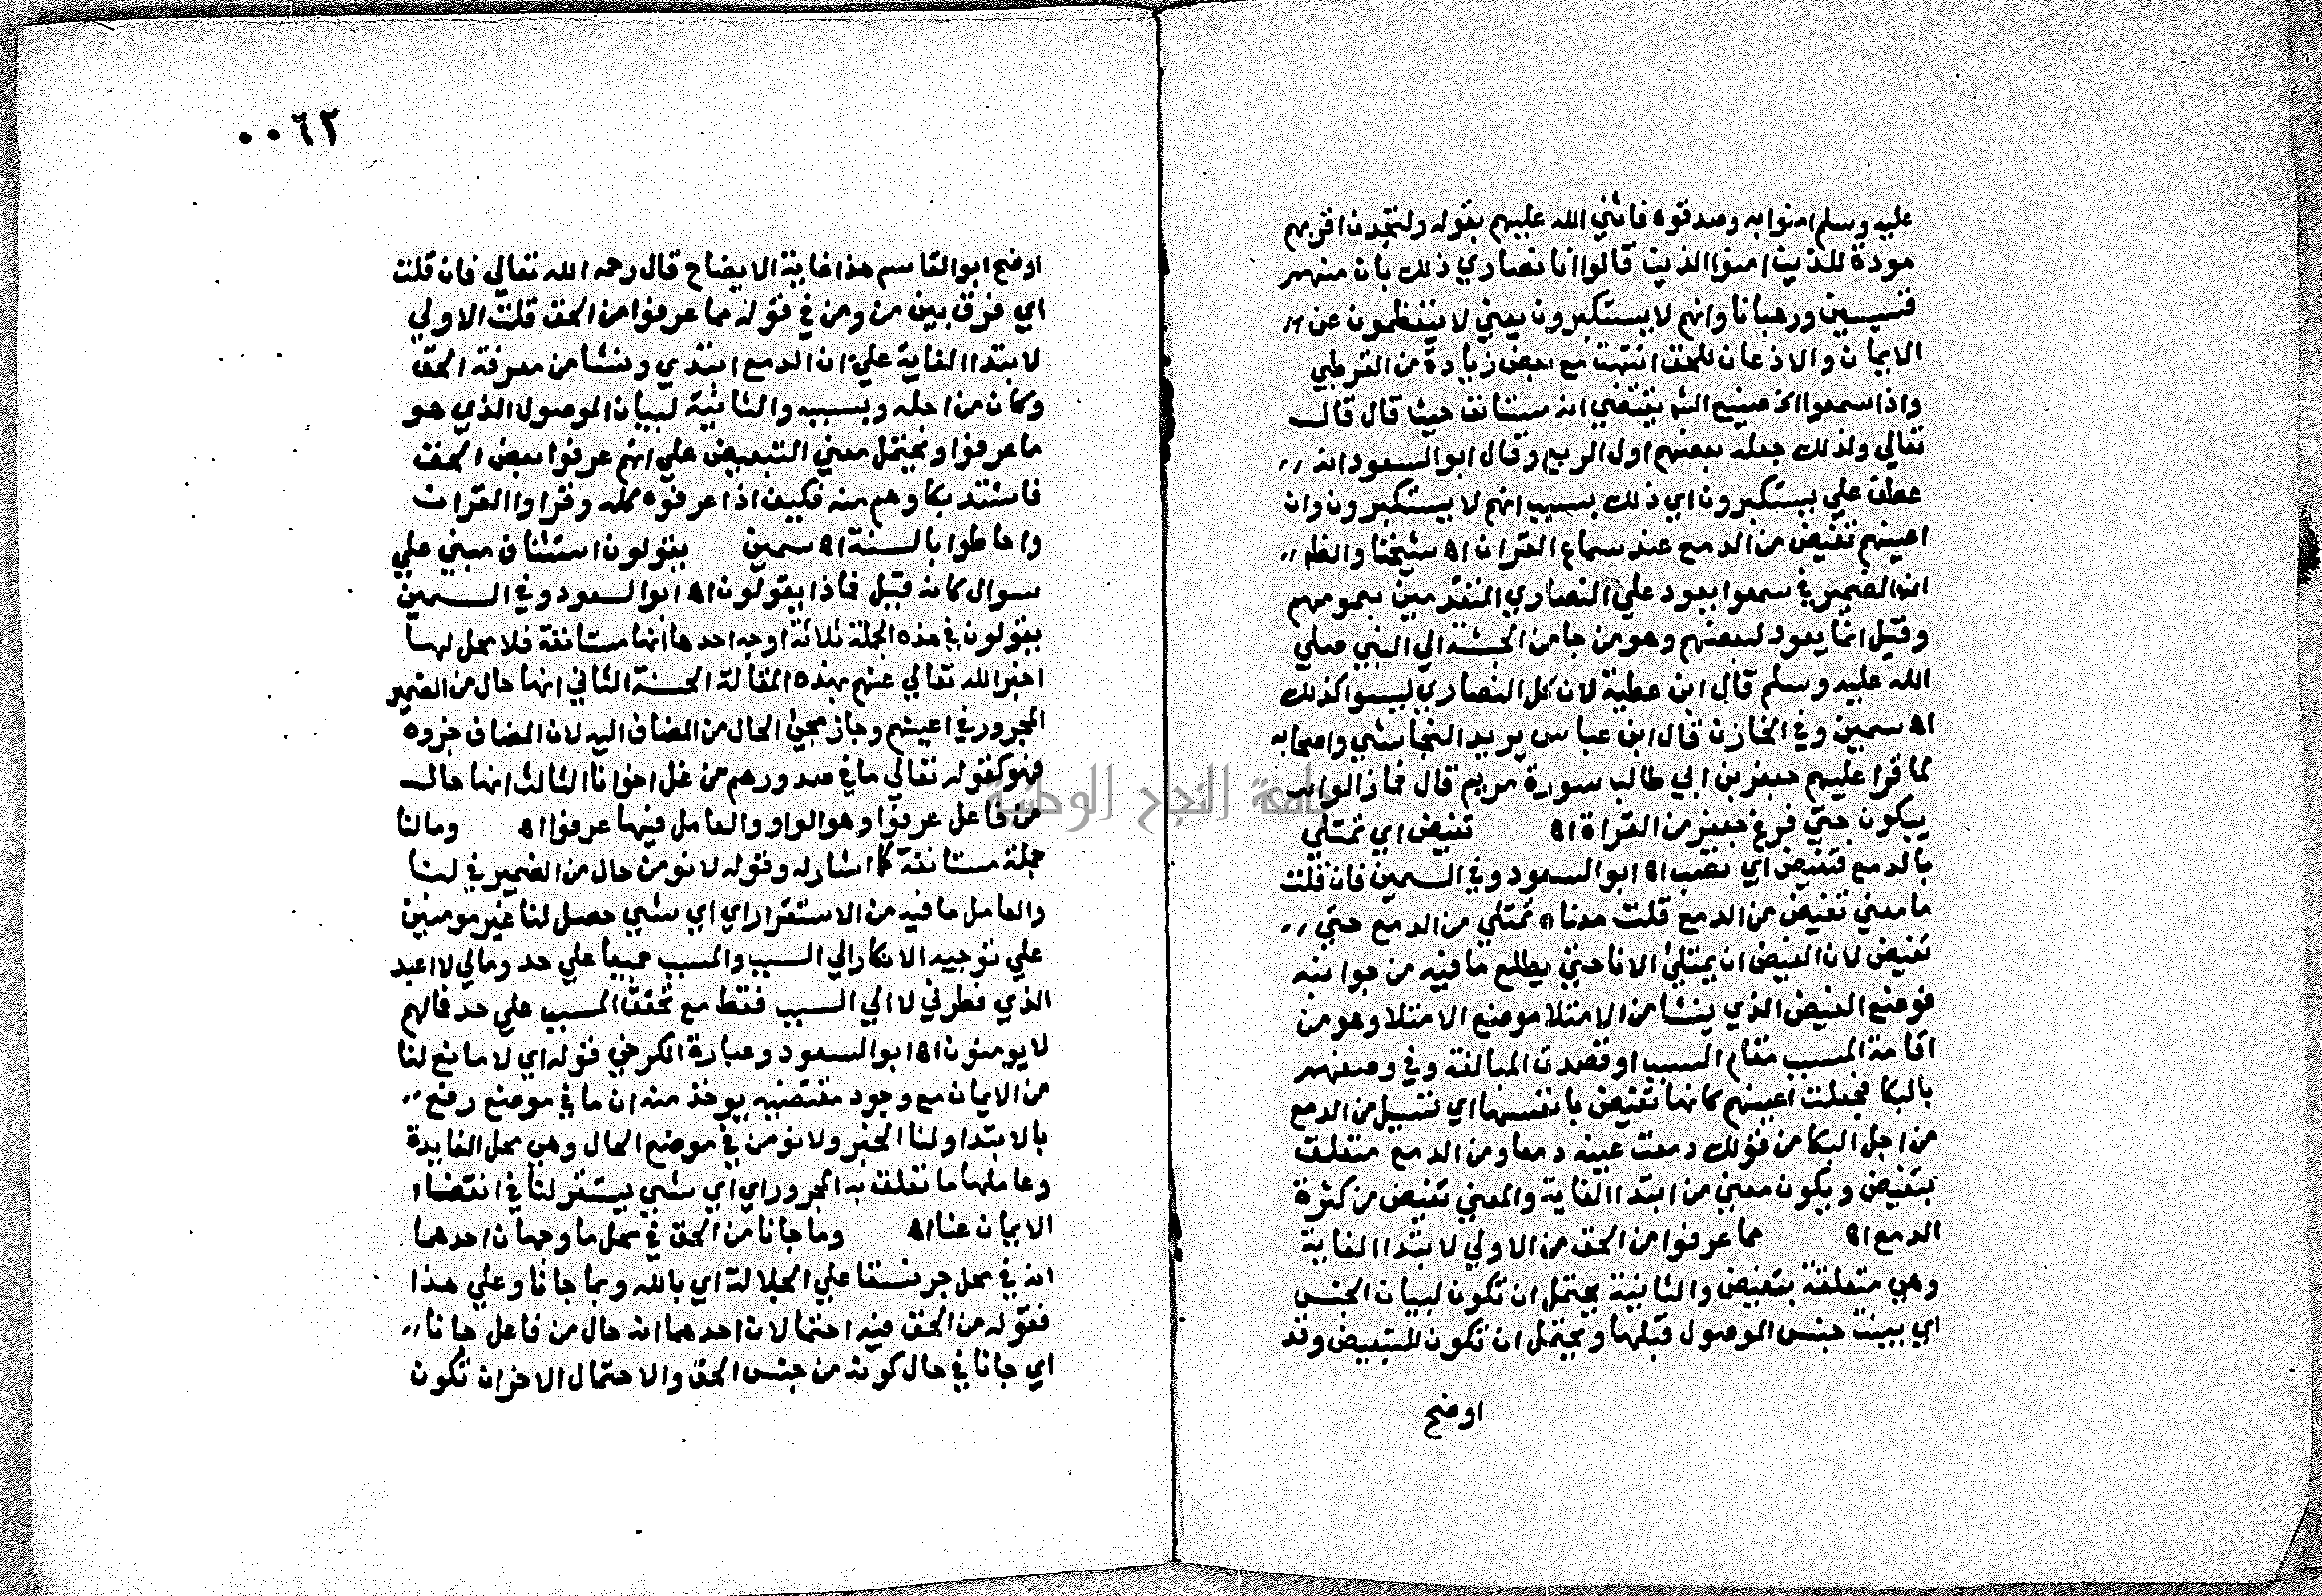 عليه وسلم امنوا به وصدقوه فاثني الله عليهم بقوله ولتجدن اقربهم
مودة للذين امنوا الذين قالوا انا نصاري ذلك بان منهم
قسيسين ورهبانا وانهم لا يستكبرون يعني لا يتعظمون عن
الايمان والاذعان للحق انتهت مع بعض زيادة من القرطبي
واذا سمعوا الخ صنيع الشم يقتضي انه مستانف حيث قال قال
تعالي ولذلك جعله بعضهم اول الربع وقال ابو السعود انه
عطف علي يستكبرون اي ذلك بسبب انهم لا يستكبرون وان
اعينهم تفيض من الدمع عند سماع القران اه شيخنا والظم
ان الضمير في سمعوا يعود علي النصاري المتقدمين بعمومهم
وقيل انما يعود لبعضهم وهو من جا من الحبشة الي النبي صلي
الله عليه وسلم قال ابن عطية لان كل النصاري ليسوا كذلك
اه سمين وفي الخازن قال ابن عباس يريد النجاشي واصحابه
لما قرا عليهم جعفر بن ابي طالب سورة مريم قال فما زالوا
يبكون حتي فرغ جعفر من القراة اه تفيض اي تمتلي
بالدمع فتفيض اي تصب اه ابو السعود وفي السمين فان قلت
ما معني تفيض من الدمع قلت معناه تمتلي من الدمع حتي
تفيض لان الفيض ان يمتلئ الانا حتي يطلع ما فيه من جوانبه
فوضع الفيض الذي ينشا من الامتلا موضع الامتلا وهو من
اقامة المسبب مقام السبب او قصدت المبالغة وفي وصفهم
بالبكا فجعلت اعينهم كانها تفيض بانفسها اي تسيل من الدمع
من اجل البكا من قولك دمعت عينه دمعا ومن الدمع متعلق
بتفيض ويكون معني من ابتدا الغاية والمعني تفيض من كثرة
الدمع اه مما عرفوا من الحق من الاولي لابتدا الغاية
وهي متعلقة بتفيض والثانية يحتمل ان تكون لبيان الجنس
اي بينت جنس الموصول قبلها ويحتمل ان تكون للتبعيض وقد
اوضح
٠٠٦٢
اوضح ابو القاسم هذا غاية الايضاح قال رحمه الله تعالي فان قلت
اي فرق بين من ومن في قوله مما عرفوا من الحق قلت الاولي
لابتدا الغاية علي ان الدمع ابتدي ونشا من معرفة الحق
وكان من اجله وبسببه والثانية لبيان الموصول الذي هو
ما عرفوا ويحتمل معني التبعيض علي انهم عرفوا بعض الحق
فاشتد بكاوهم منه فكيف اذا عرفوه كله وقراوا القران
واحاطوا بالسنة اه سمين يقولون استئناف مبني علي
سوال كانه قيل فماذا يقولون اه ابو السعود وفي السمين
يقولون في هذه الجملة ثلاثة اوجه احدها انها مستانفة فلا محل لها
اخبر الله تعالي عنهم بهذه المقالة الحسنة الثاني انها حال من الضمير
المجرور في اعينهم وجاز مجئ الحال من المضاف اليه لان المضاف جزوه
فهو كقوله تعالي ما في صدورهم من غل اخوانا الثالث انها حال
من فاعل عرفوا وهو الواو والعامل فيها عرفوا اه وما لنا
جملة مستانفة كما اشار له وقوله لا نومن حال من الضمير في لنا
والعامل ما فيه من الاستقرار اي اي شي حصل لنا غير مومنين
علي توجيه الانكار الي السبب والمسبب جميعا علي حد ومالي لا اعبد
الذي فطرني لا الي السبب فقط مع تحقق المسبب علي حد فمالهم
لا يومنون اه ابو السعود وعبارة الكرخي قوله اي لا مانع لنا
من الايمان مع وجود مقتضيه يوخذ منه ان ما في موضع رفع
بالابتدا ولنا الخبر ولا نومن في موضع الحال وهي محل الفايدة
وعاملها ما تعلق به المجرور اي اي شي يستقر لنا في انتفاء
الايمان عنا اه وما جانا من الحق في محل ما وجهان احدهما
انه في محل جر نسقا علي الجلالة اي بالله وبما جانا وعلي هذا
فقوله من الحق فيه احتمالان احدهما انه حال من فاعل جانا
اي جانا في حال كونه من جنس الحق والاحتمال الاخر ان تكون
جامعة النجاح الوطنية